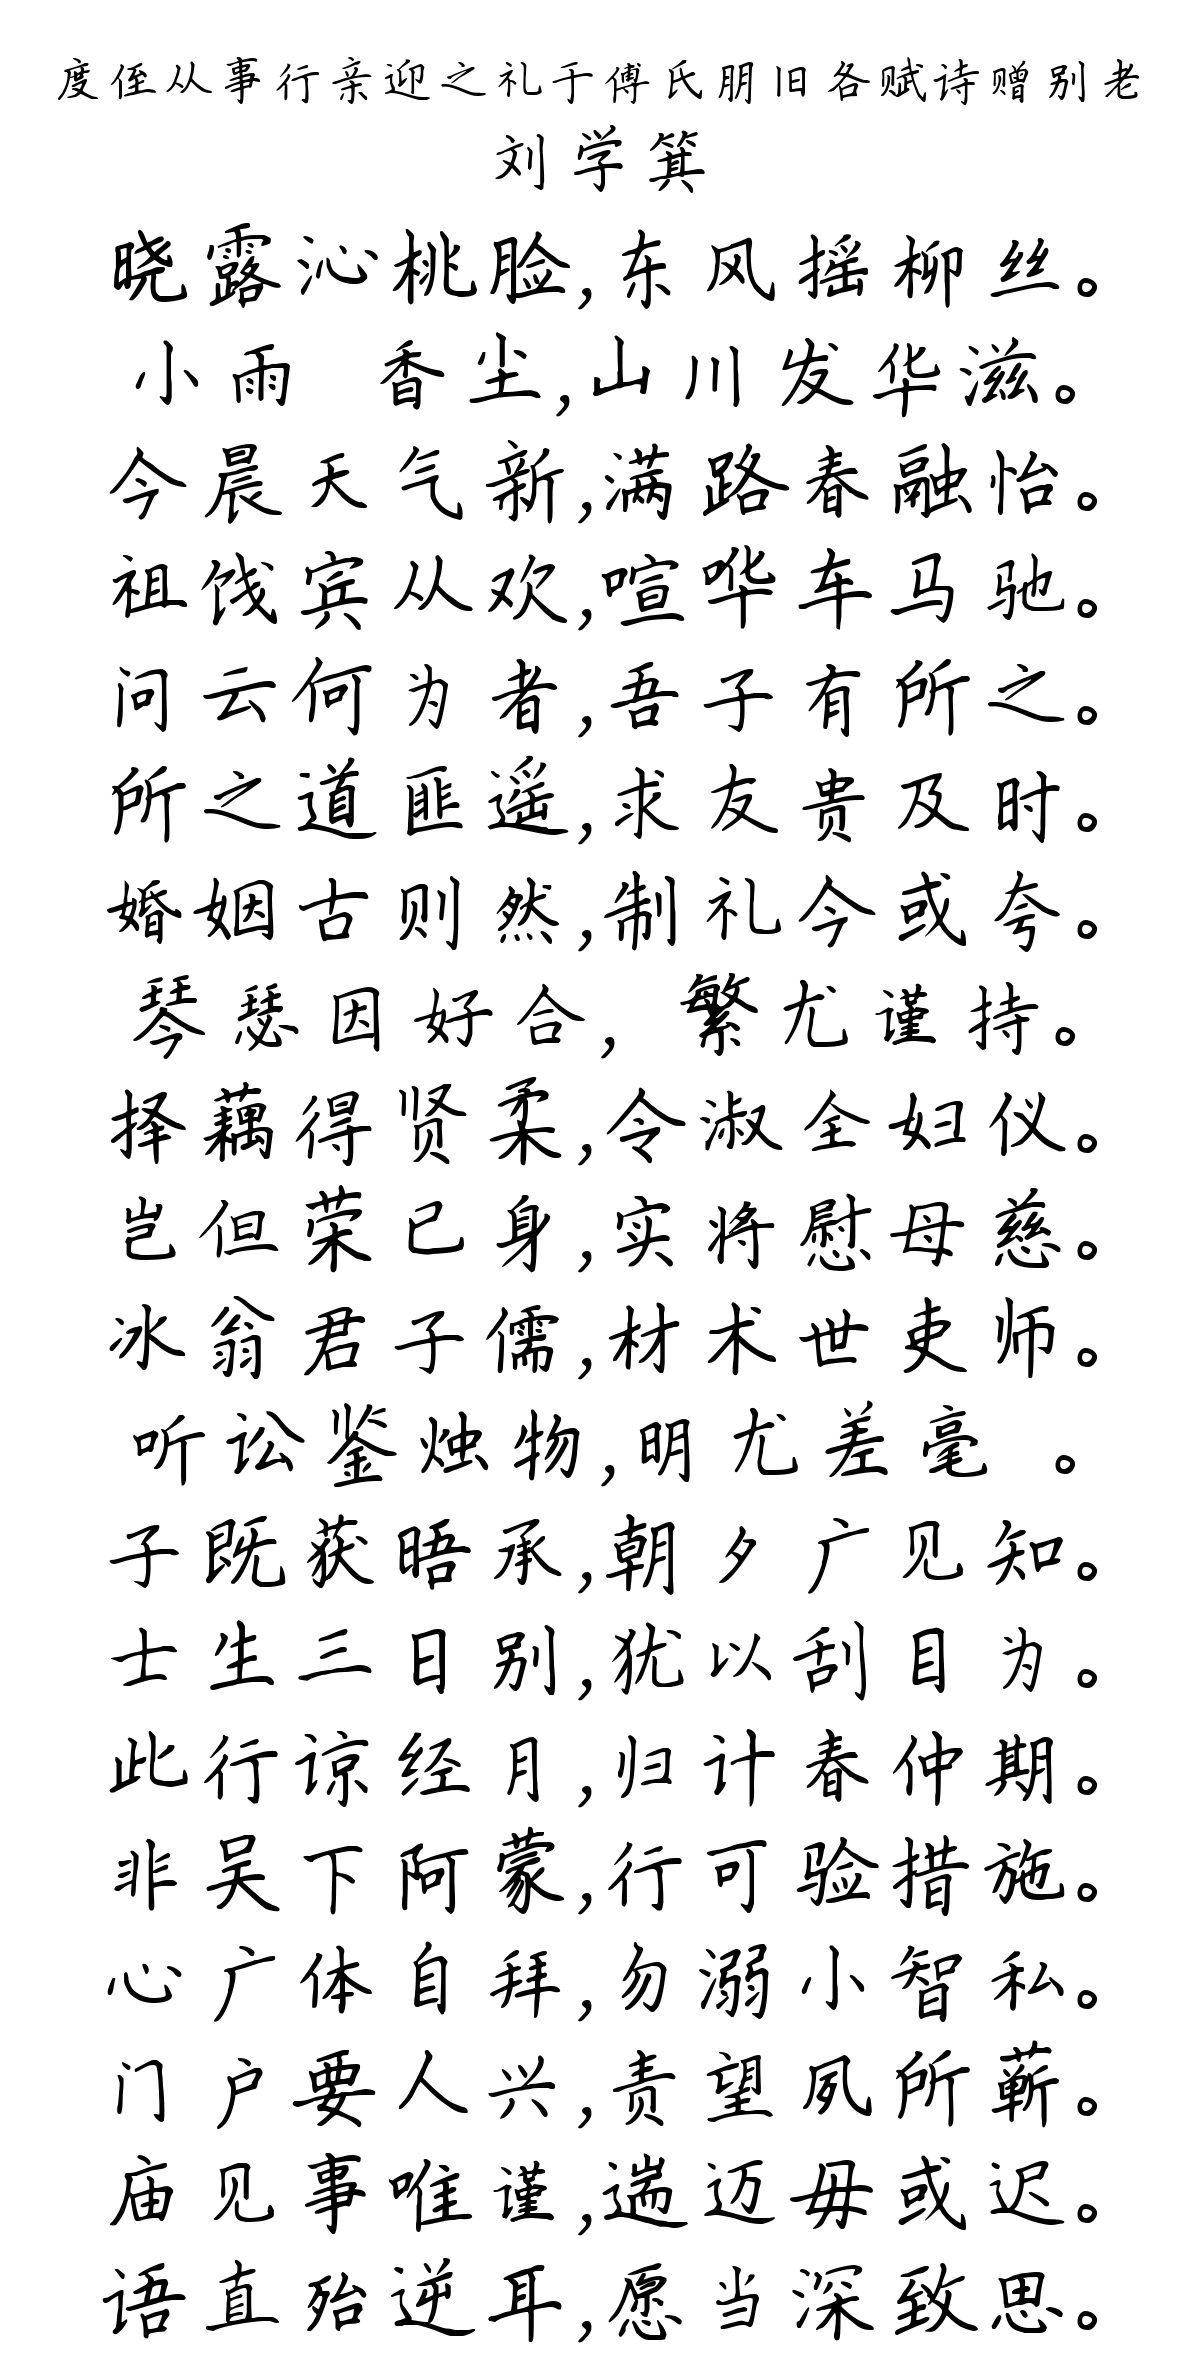 度侄从事行亲迎之礼于傅氏朋旧各赋诗赠别老
刘学箕
晓露沁桃脸,东风摇柳丝。
小雨 香尘,山川发华滋。
今晨天气新,满路春融怡。
祖饯宾从欢,喧哗车马驰。
问云何为者,吾子有所之。
所之道匪遥,求友贵及时。
婚姻古则然,制礼今或夸。
琴瑟因好合, 繁尤谨持。
择藕得贤柔,令淑全妇仪。
岂但荣已身,实将慰母慈。
冰翁君子儒,材术世吏师。
听讼鉴烛物,明尤差毫 。
子既获晤承,朝夕广见知。
士生三日别,犹以刮目为。
此行谅经月,归计春仲期。
非吴下阿蒙,行可验措施。
心广体自拜,勿溺小智私。
门户要人兴,责望夙所蕲。
庙见事唯谨,遄迈毋或迟。
语直殆逆耳,愿当深致思。